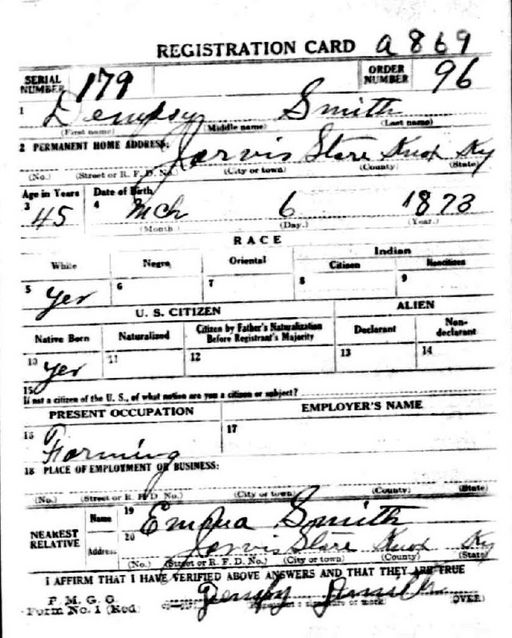 REGISTRATION CARD a869
SERIAL NUMBER 179 ORDER NUMBER 96
1 Dempsy Smith
(First name) (Middle name) (Last name)
2 PERMANENT HOME ADDRESS: Jarvis Store Knox Ky
(No.) (Street or R. F. D. No.) (City or town) (County) (State)
Age in Years Date of Birth
3 45 4 Mch 6 1873
(Month) (Day.) (Year.)
RACE
White Negro Oriental Indian
Citizen Noncitizen
5 Yes 6 7 8 9
U. S. CITIZEN ALIEN
Native Born Naturalized Citizen by Father's Naturalization Before Registrant's Majority Declarant Non-declarant
10 Yes 11 12 13 14
15
If not a citizen of the U. S., of what nation are you a citizen or subject?
PRESENT OCCUPATION EMPLOYER'S NAME
16 Farming 17
18 PLACE OF EMPLOYMENT OR BUSINESS:
(No.) (Street or R. F. D. No.) (City or town) (County) (State)
NEAREST RELATIVE Name 19 Emma Smith
Address 20 Jarvis Store Knox Ky
(No.) (Street or R. F. D. No.) (City or town) (County) (State)
I AFFIRM THAT I HAVE VERIFIED ABOVE ANSWERS AND THAT THEY ARE TRUE
P. M. G. O.
Form No. 1 (Red) Dempsy Smith (OVER)